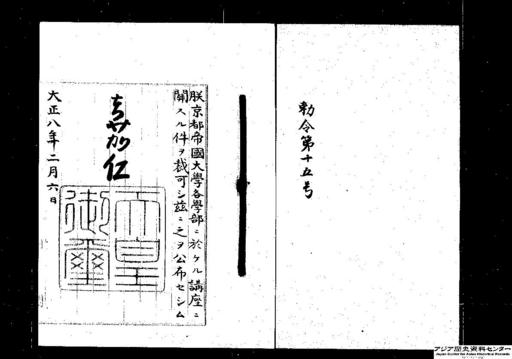 勅令第十五号
朕京都帝國大學各學部ニ於ケル講座ニ
關スル件ヲ裁可シ茲ニ之ヲ公布セシム
嘉仁
天皇御璽
大正八年二月六日
アジア歴史資料センター
Japan Center for Asian Historical Records